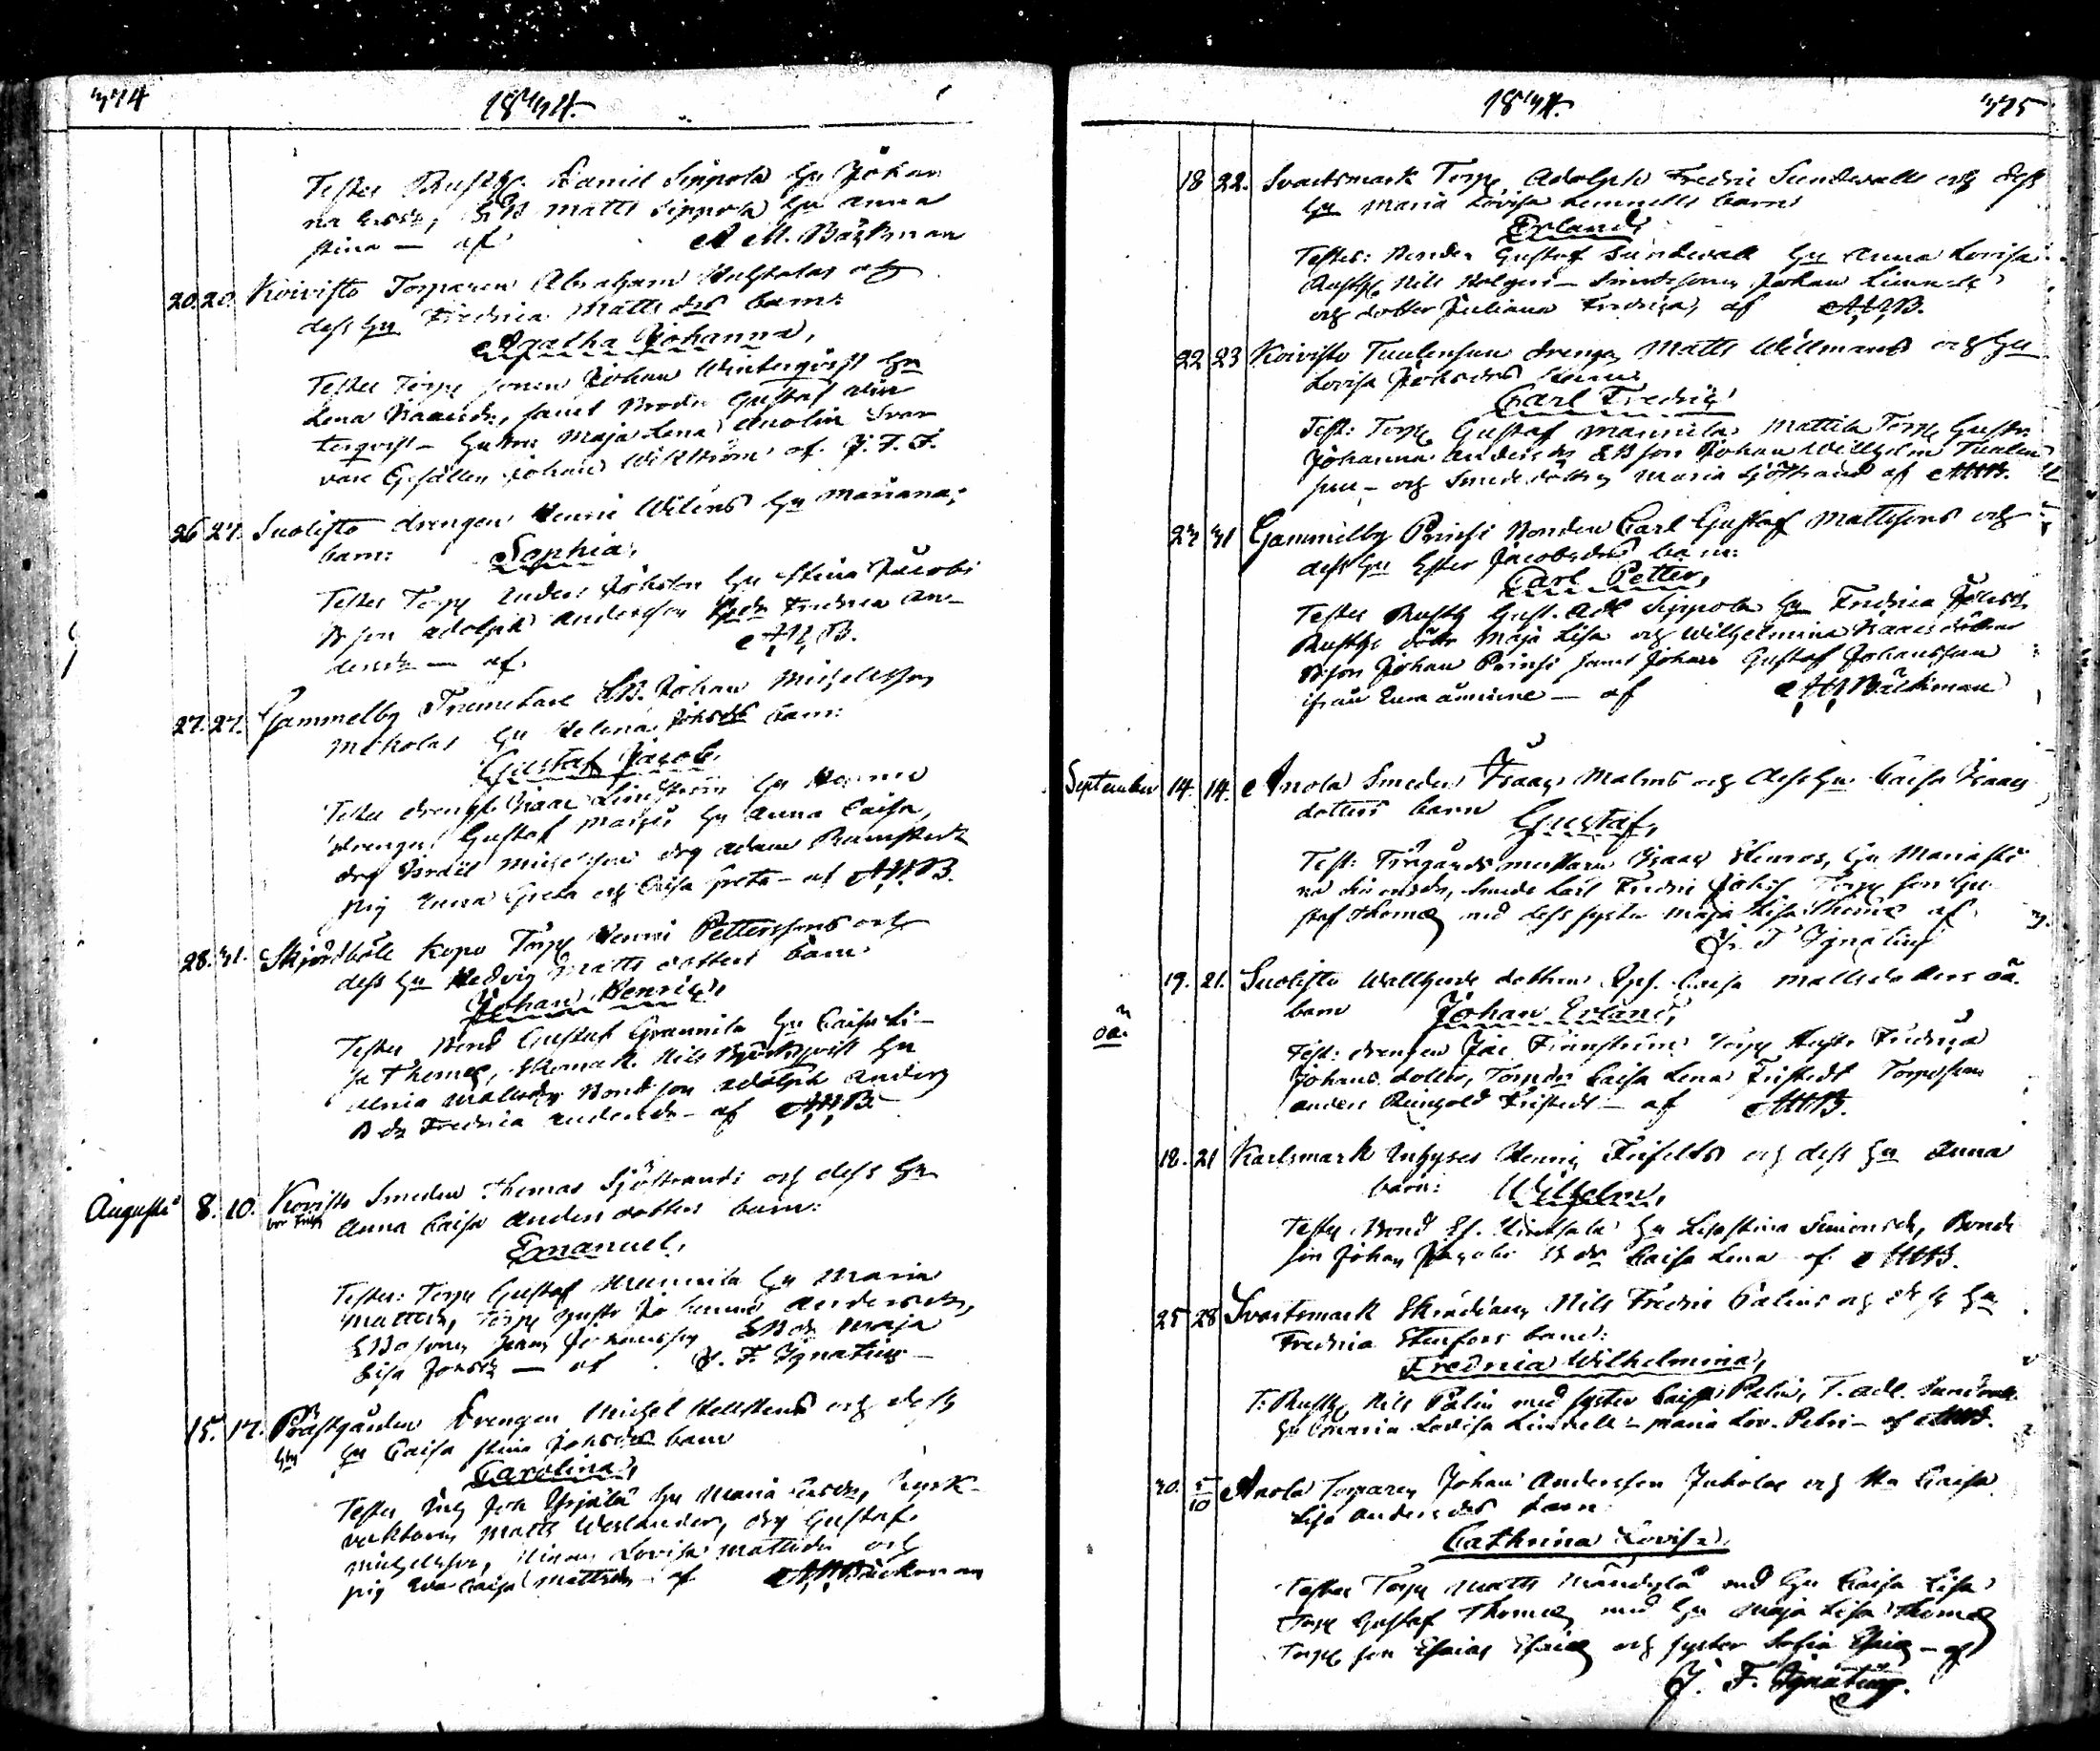 374
1834.
Testes Rusth. Daniel Sippola hu Johan
na Ersdr, Matts Sippola hu Anna
Stina — af A M. Bäckman
20. 20. Koivisto Torparen Abraham och
dess hu Fredrica Mattsdrs barn:
Agatha Johanna,
Testes Torp sonen Johan Winterqvist hu
Lena Isaacsdr, samt Gustaf
terqvist — Maja Lena
Gesällen Johan Wikström af J. F. I.
26 27. Suolisto drengen Henric Wiléns hu Mariana,
barn: Sophia,
Testes Torp Anders hu Stina Jacobs
B son Adolph Andersson Fredrica An-
dersdr — af A. M. B.
27. 27. Gammelby Johan Michelsson
Nikolas hu Helena Johsdrs barn:
Gustaf Jacob,
Testes Isaac Lindström hu Hanna
drengen Gustaf hu Anna Caisa,
drg Israel Michelsson drg Adam
pig Anna Greta och Caisa Greta — af A. M. B.
28. 31. Skjördböle Kopo Torp Henric Petterssons och
dess hu Hedvig Matts dotters barn
Johan Henric,
Testes Bond Gustaf Grannila hu Caisa Li-
sa Thomæ, Skomak. Nils Björkqvist hu
Ulrica Mattsdr Bondson Adolph Anders
B dr Fredrica Andersdr — af A. M. B.
Augusti 8. 10. Koivisto Smeden Thomas Sjöstrands och dess hu
Anna Caisa Anders dotters barn:
Emanuel,
Testes: Torp Gustaf Mannila hu Maria
Mattsdr, Torp hustr Johanna Andersdr,
Johansson Maja
Lisa Johsdr — af J. F. Ignatius —
15. 17. Prästgården Drengen Michel Hellstens och dess
hu Caisa Stina Johsdrs barn
Carolina,
Testes Inh Joh Yrjälä hu Maria Ersdr, Kyrk-
vaktaren Matts Weslander, drg Gustaf
Michelsson, Lovisa Mattsdr och
pig Eva Caisa Mattsdr — af A. M. Bäckman
1834.
375
18 22. Svartsmark Torp. Adolph Fredric Sundwalls och dess
hu Maria Lovisa Lemnells barn
Erland,
Testes: Bonden Gustaf Sundwall hu Anna Lovisa
Rusth. Nils Holgers — Smedssonen Johan
och dotter Juliana Fredrica, af A. M. B.
22 23 Koivisto Tuulensuu drengen Matts Willmans och hu
Lovisa Johsdrs barn
Carl Fredric,
Test: Torp Gustaf Mannila Mattila Torp hustr.
Johanna Anders dr son Johan Willhelm Tuulen
suu — och Smeds dottren Maria Sjöstrand af A. M. B.
23 31 Gammelby Prinsi Bonden Carl Gustaf Mattssons och
dess hu Ester Jacobsdrs barn:
Carl Petter,
Testes Rusth Gust. Adl Sippola hu Fredrica Johsdr
Rusths döttr Maja Lisa och Wilhelmina Isaacsdöttrar
B son Johan Prinsi samt Johan Gustaf Johansson
ifrån Eura — af A. M. Bäckman
September 14. 14. Anola Smeden Isaac Malms och dess hu Caisa Isaacs
dotters barn
Gustaf,
Test: Trägårdsmästaren Isaac Stenros, hu Maria Sti
na Simonsdr, Smeds Carl Fredric Johss Torp son Gu
staf Thomæ med dess syster Maja Lisa Thomæ af
J. F. Ignatius
oä. 19. 21. Suolisto dottren Qpf. Caisa Mattsdotters oä.
barn Johan Erland,
Test: drengen Jac Finnström Torp Hustr. Fredrica
Johans dotter, Torpdr Caisa Lena Fristedt Torpson
Anders Rungold Fristedt — af A. M. B.
18. 21 Karlsmark Inhyses Henric Frifelts och dess hu Anna
barn: Wilhelm,
Testes Bond Ef. hu Lisa Stina Simonsdr, Bond
son Johan Jacobi B dr Caisa Lena af A. M. B.
25 28 Svartsmark Skräddaren Nils Fredric Palins och dess hu
Fredrica Stenfors barn:
Fredrica Wilhelmina,
T: Rusth Nils Palin med syster Caisa Palin, T. Adl. Sundwall
hu Maria Lovisa Lindell — Maria Lov. Petri — af A. M. B.
30. 5/10 Anola Torparen Johan Andersson Jubolas och hu Caisa
Lisa Andersdrs barn
Cathrina Lovisa,
Testes Torp Matts Mändylä med hu Caisa Lisa
Torp Gustaf Thomæ med hu Maja Lisa Thomæ
Torp son Esaias Esaiæ och syster Sofia Esaiæ — af
J. F. Ignatius.